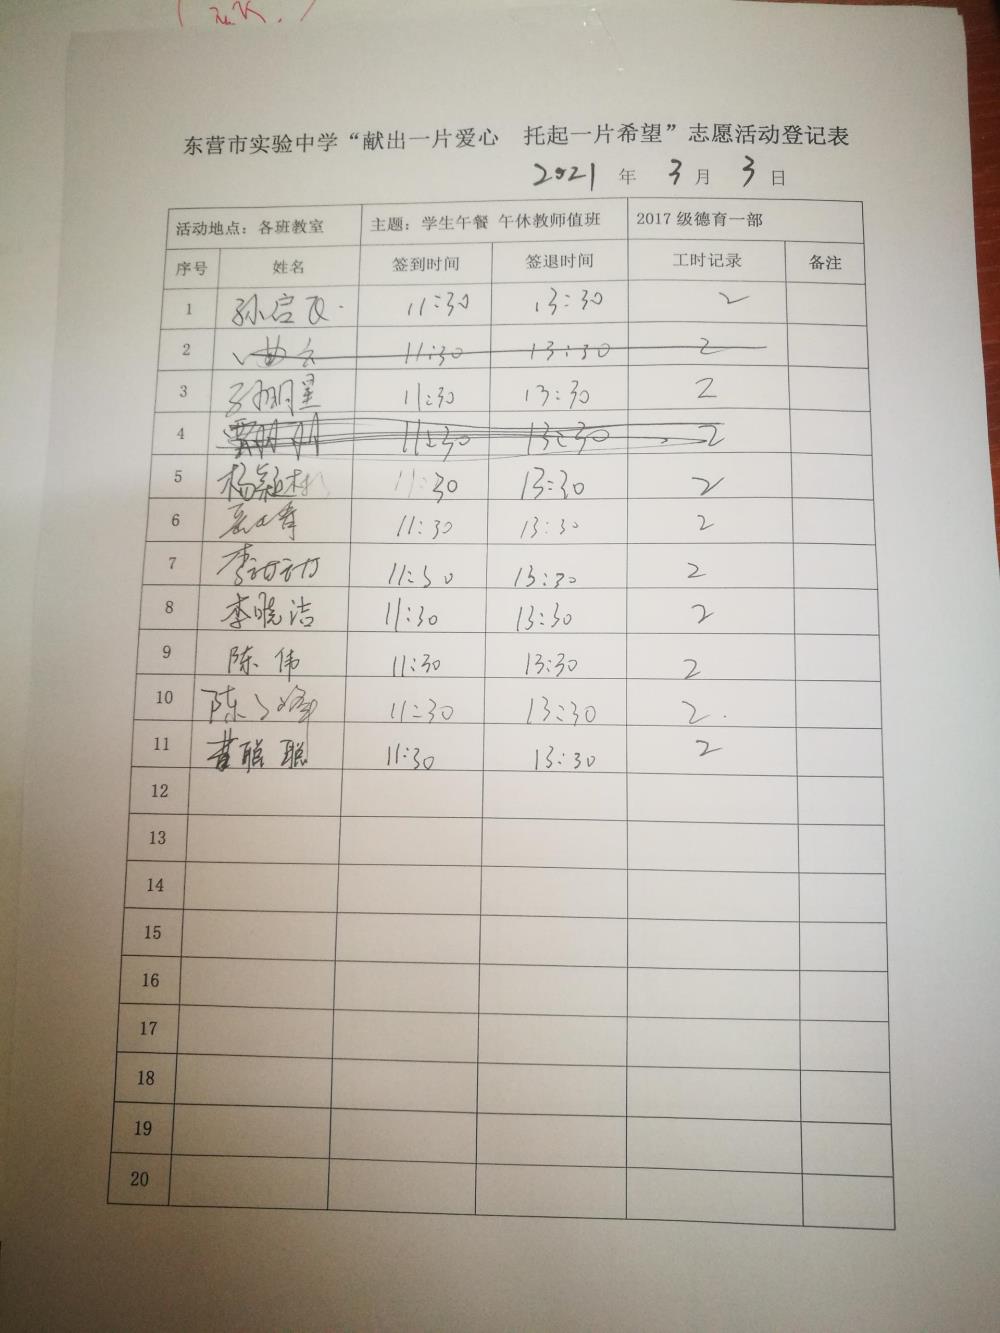 东营市实验中学“献出一片爱心 托起一片希望”志愿活动登记表
2021 年 3 月 3 日
活动地点：各班教室 主题：学生午餐 午休教师值班 2017 级德育一部
序号 姓名 签到时间 签退时间 工时记录 备注
1 孙启 11:30 13:30 2
2 曲 11:30 13:30 2
3 孙明星 11:30 13:30 2
4 11:30 13:30 2
5 杨颖 11:30 13:30 2
6 香 11:30 13:30 2
7 李 11:30 13:30 2
8 李晓洁 11:30 13:30 2
9 陈伟 11:30 13:30 2
10 陈 峰 11:30 13:30 2
11 黄聪聪 11:30 13:30 2
12
13
14
15
16
17
18
19
20